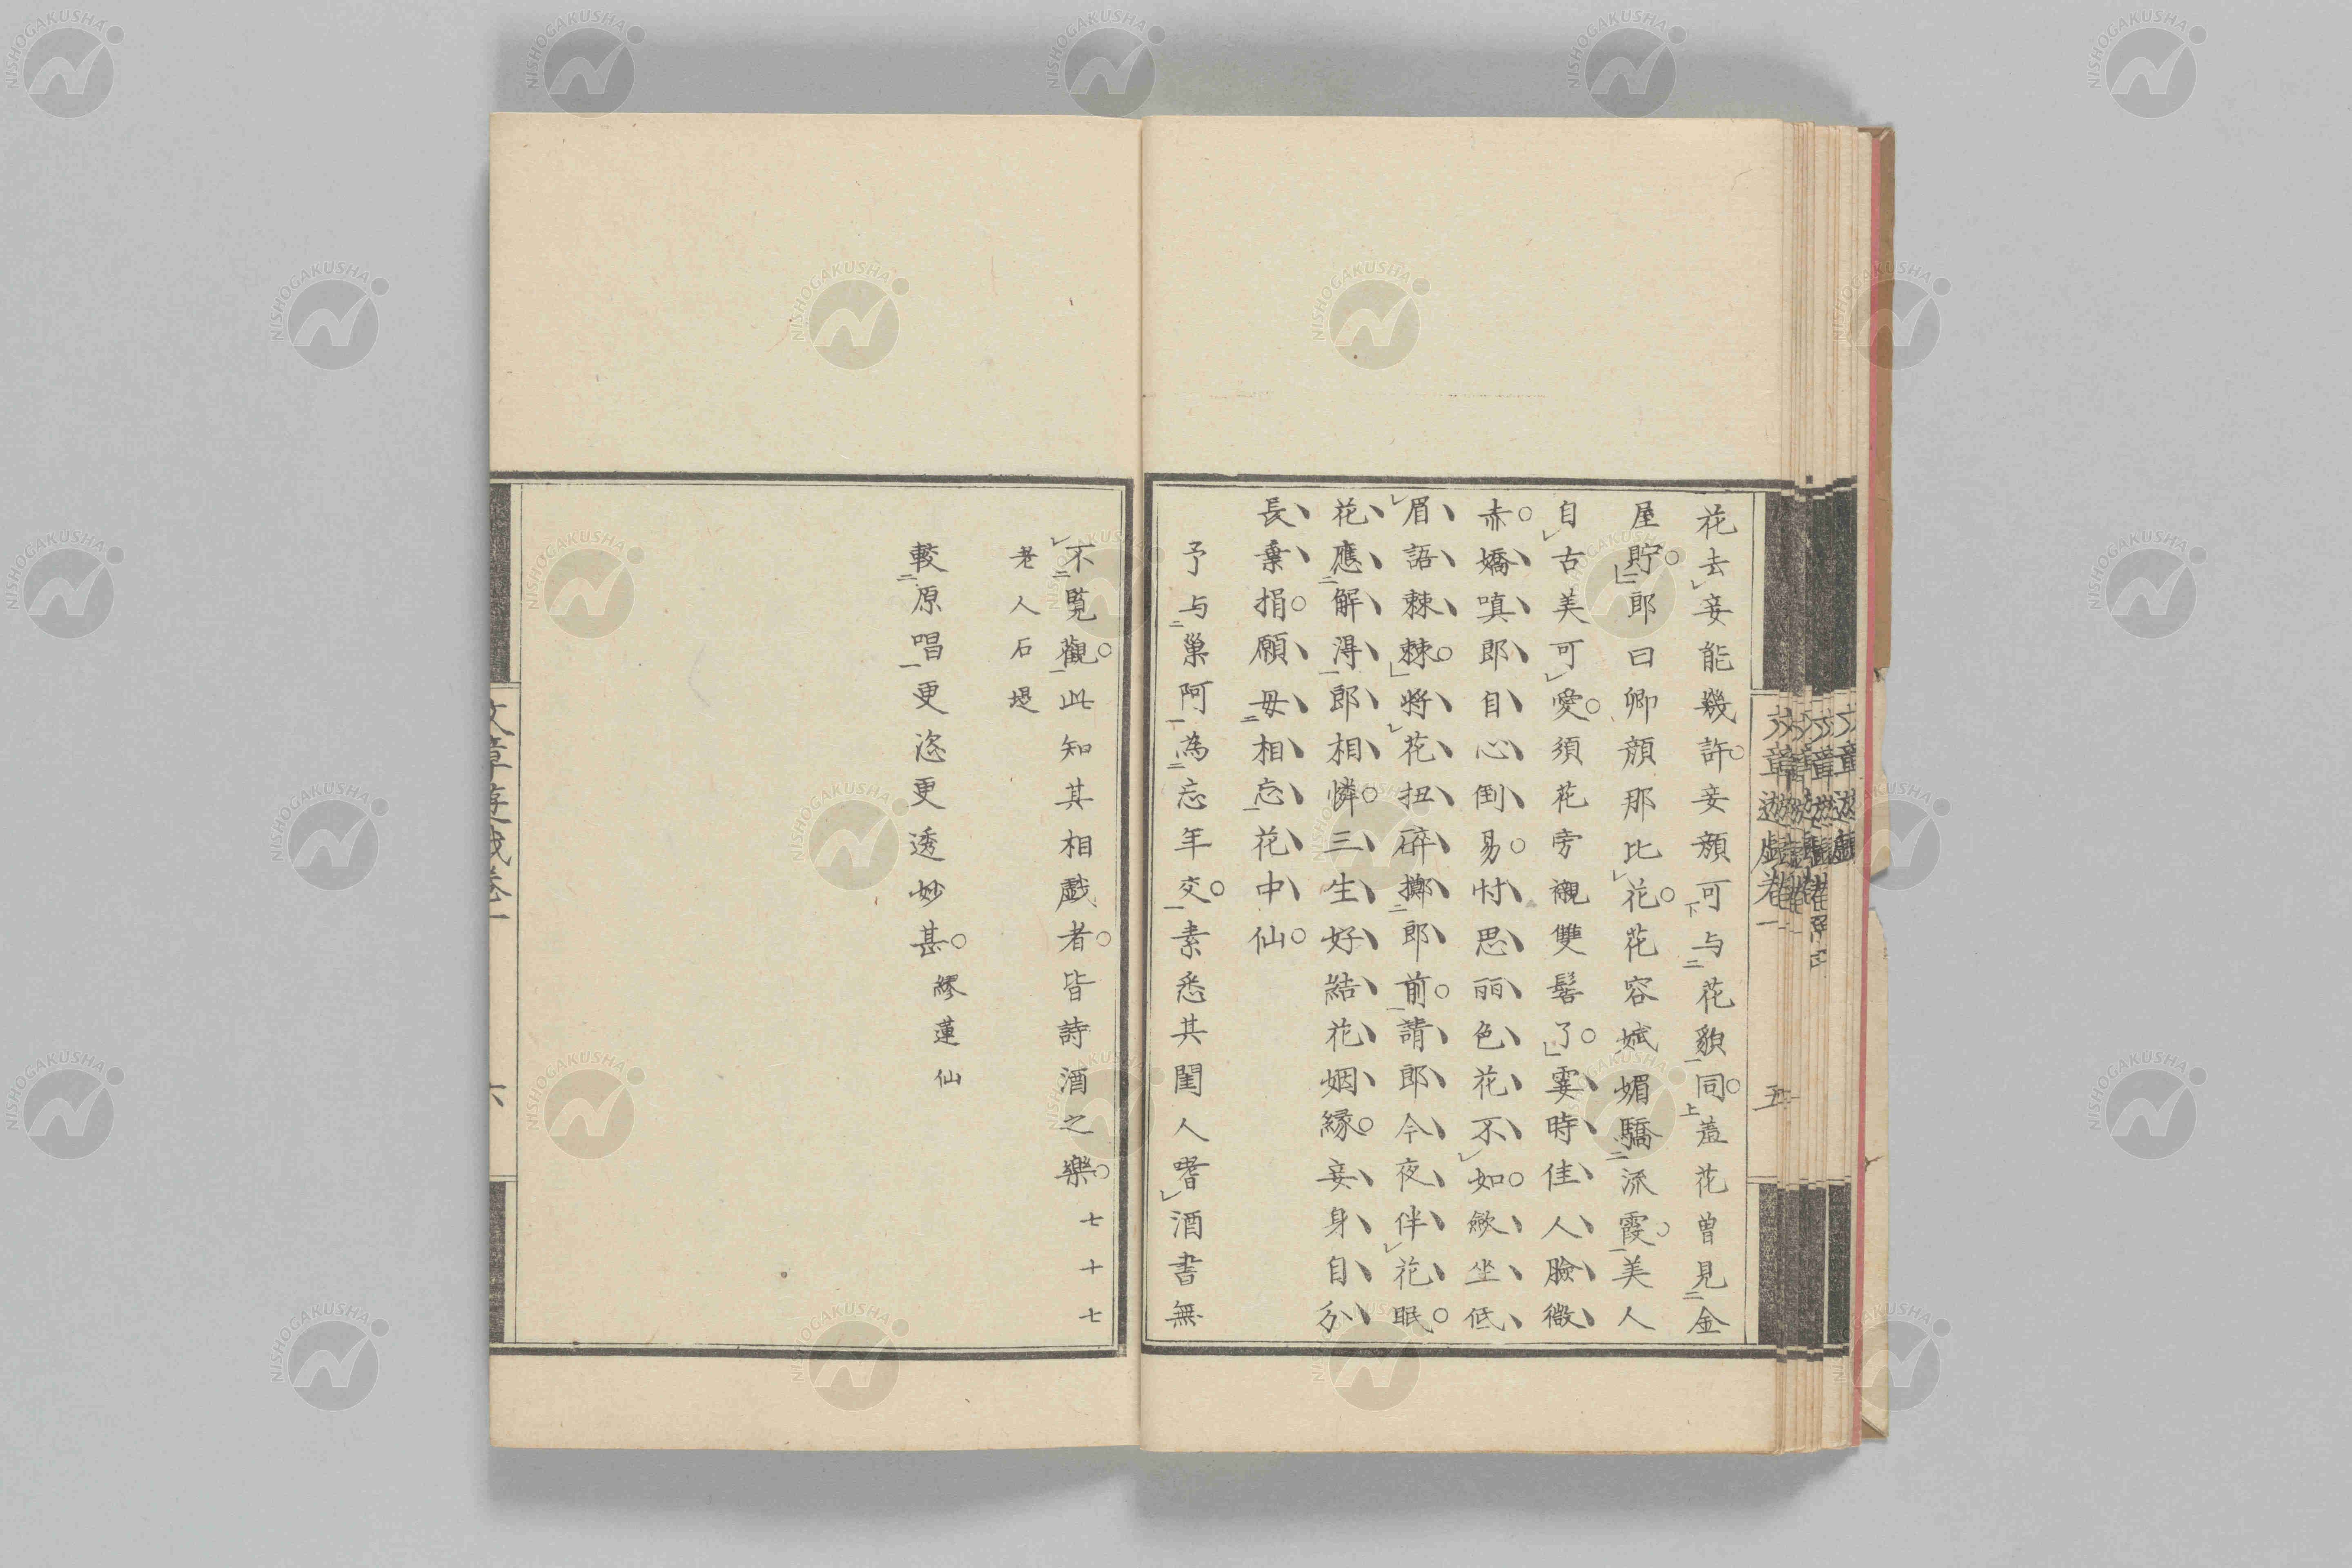 花去妾能幾許妾顔可与花貌同蓋花曽見金
屋貯郎曰卿顔那比花花容娬媚驕流霞美人
自古美可愛須花旁襯雙髻了霎時佳人臉微
赤嬌嗔郎自心倒易忖思丽色花不如斂坐低
眉語棘棘將花扭碎擲郎前請郎今夜伴花眠
花應解得郎相憐三生好結花姻縁妾身自分
長棄捐願毋相忘花中仙
予与巢阿為忘年交素悉其閨人嗜酒書無
不覧觀此知其相戯者皆詩酒之樂七十七
老人石堤
較原唱更恣更透妙甚繆蓮仙
文章遊戯巻一
五
六
NISHOGAKUSHA